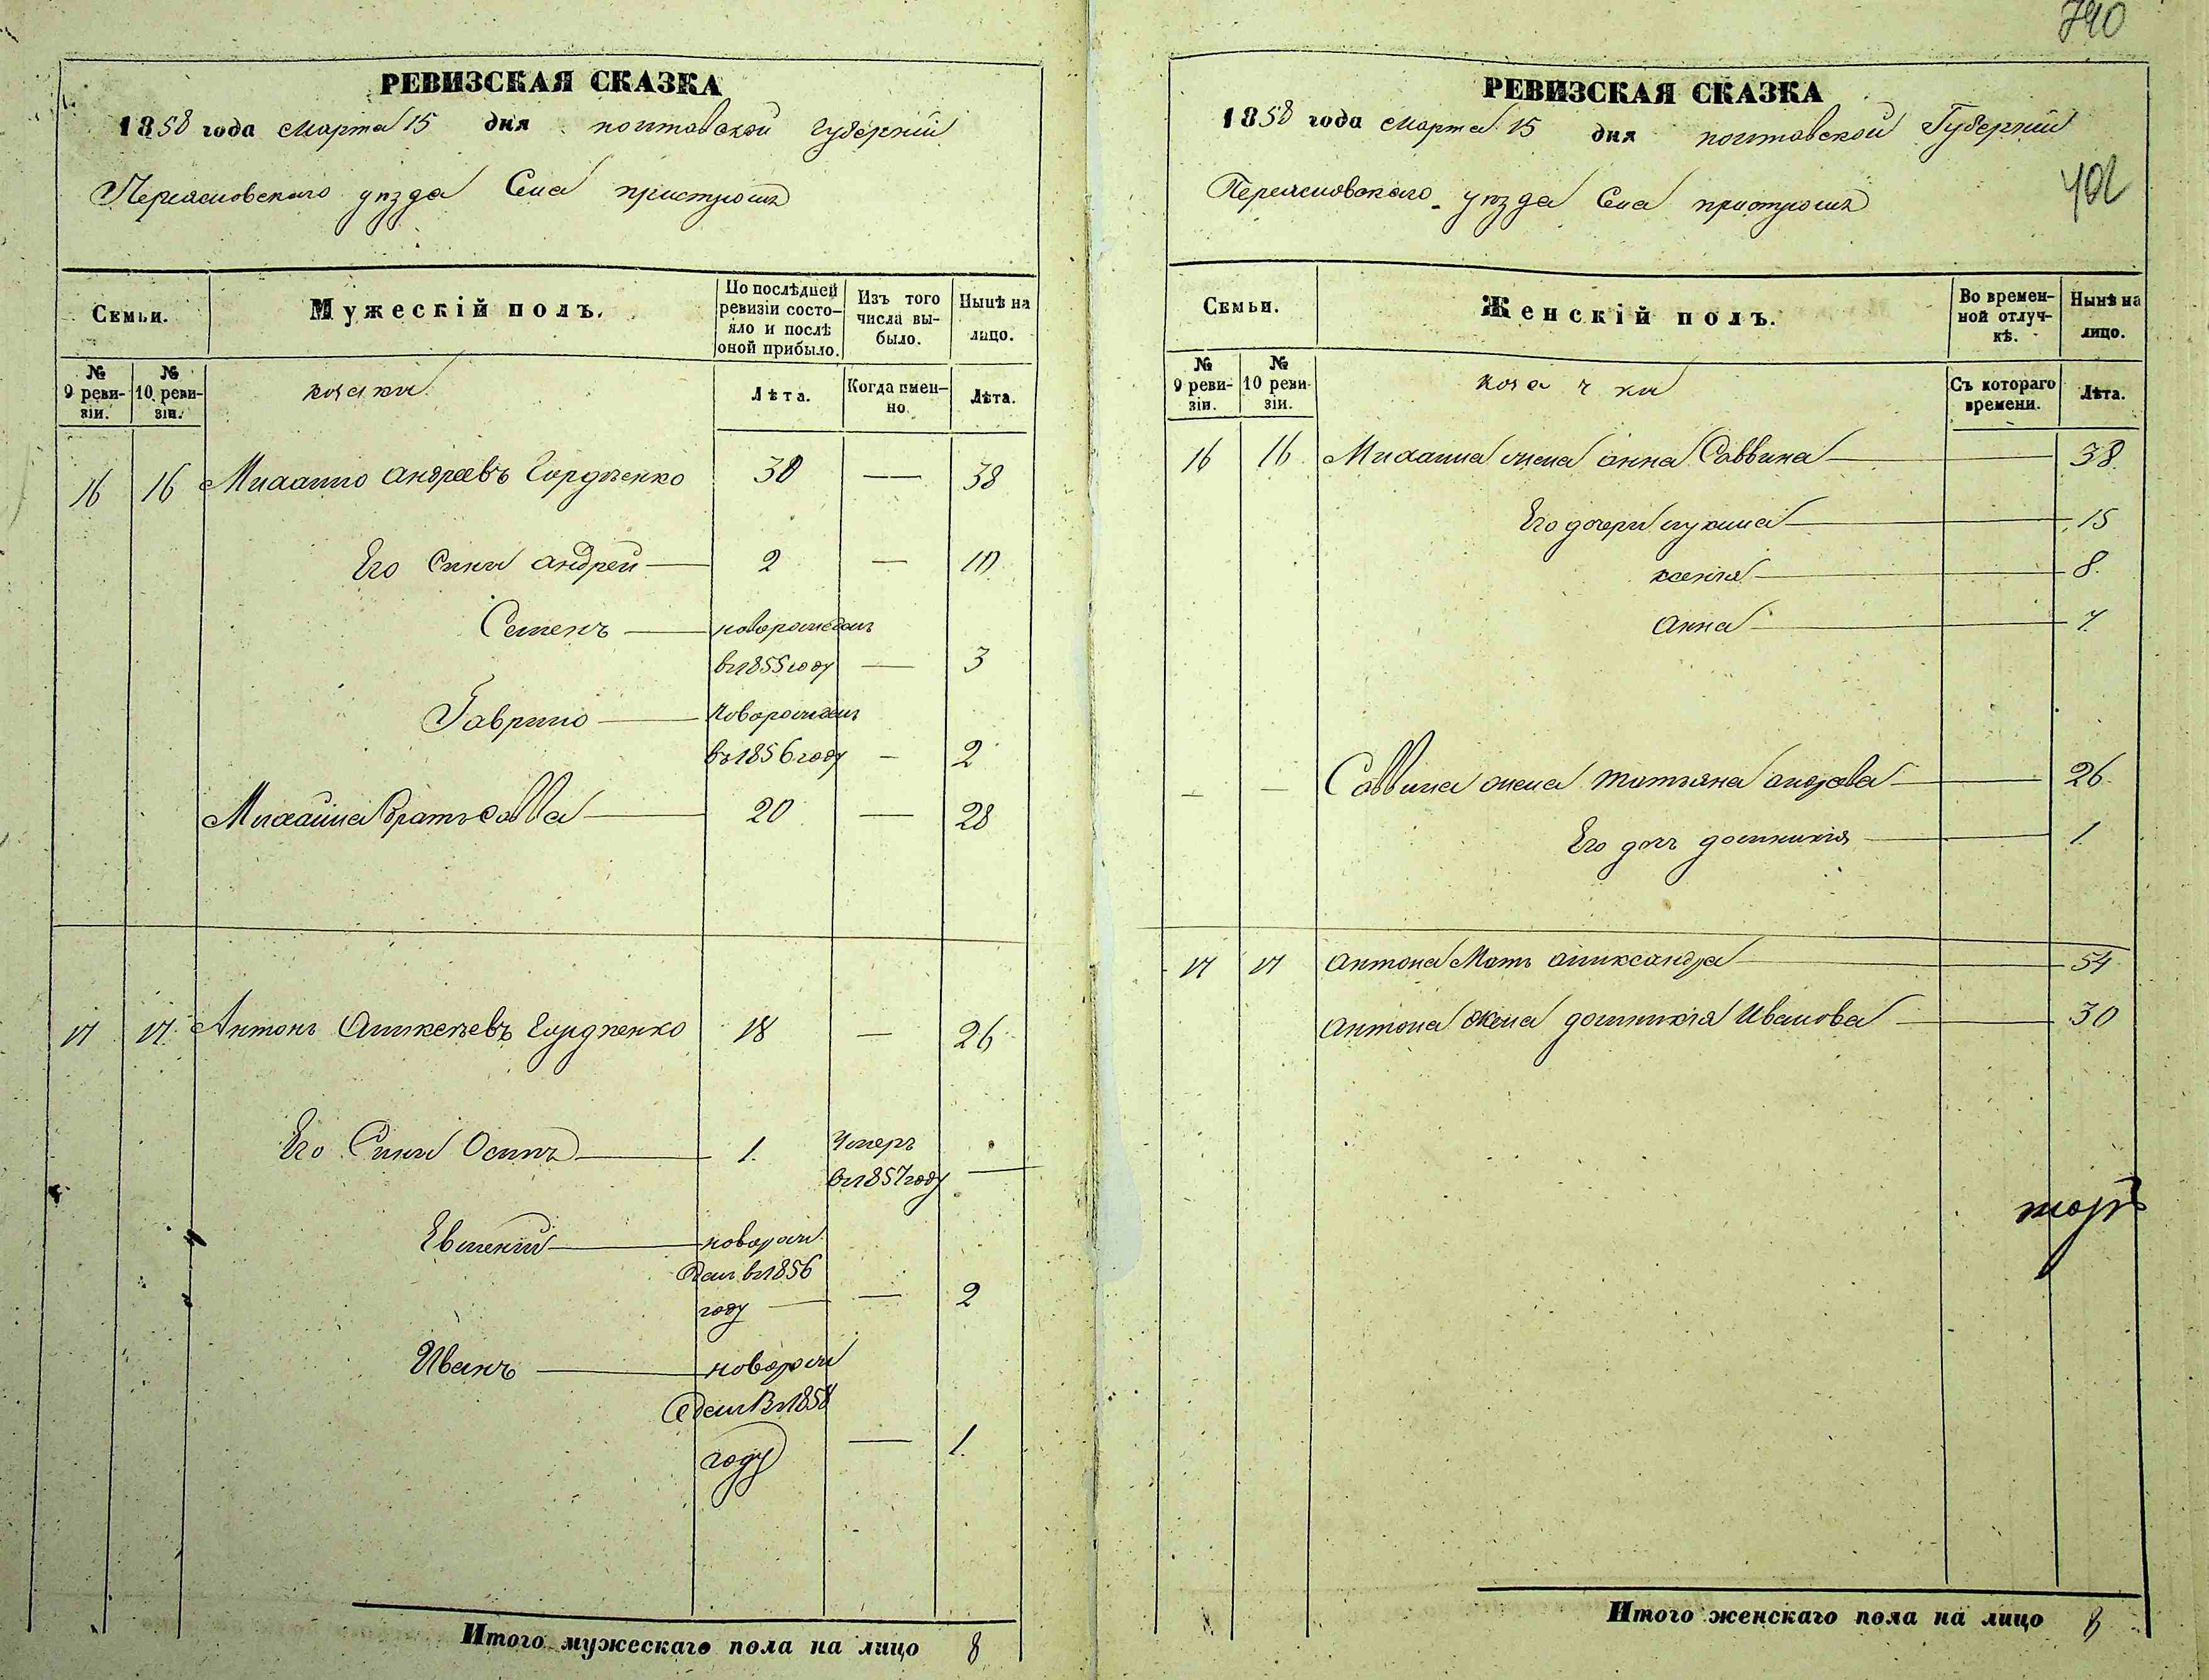 РЕВИЗСКАЯ СКАЗКА
1858 года марта 15 дня полтавской губернии
Переясловского уѣзда Села пристромъ
Семьи.
Мужескій полъ.
По послѣдней ревизіи состояло и послѣ оной прибыло.
Изъ того числа выбыло.
Нынѣ на лицо.
№ 9 ревизіи.
№ 10 ревизіи.
козаки
Лѣта.
Когда именно.
Лѣта.
16 16 Михайло андреевъ Гордѣенко 30 — 38
Его Сыны андрей 2 — 10
Семенъ новорожденъ
въ 1855 году — 3
Гаврило новорожденъ
въ 1856 году — 2
Михайла братъ савва 20 — 28
17 17 Антонъ Алексѣевъ Гордѣенко 18 — 26
Его Сыны Осипъ 1. Умеръ
въ 1857 году —
Евмений новорож
денъ въ 1856
году — 2
Иванъ новорож
денъ въ 1858
году — 1.
Итого мужескаго пола на лицо 8
740
РЕВИЗСКАЯ СКАЗКА
1858 года марта 15 дня полтавской Губернии
Переясловского уѣзда Села пристромъ
402
Семьи.
Женскій полъ.
Во временной отлучкѣ.
Нынѣ на лицо.
№ 9 ревизіи.
№ 10 ревизіи.
козачки
Съ котораго времени.
Лѣта.
16 16 Михайла жена анна Саввина 38.
Его дочери 15
ксения 8.
анна 7.
— — Саввина жена татьяна 26.
Его дочь домникия 1.
17 17 антона Мать александра 54
антона жена домникия Иванова 30
Итого женскаго пола на лицо 8